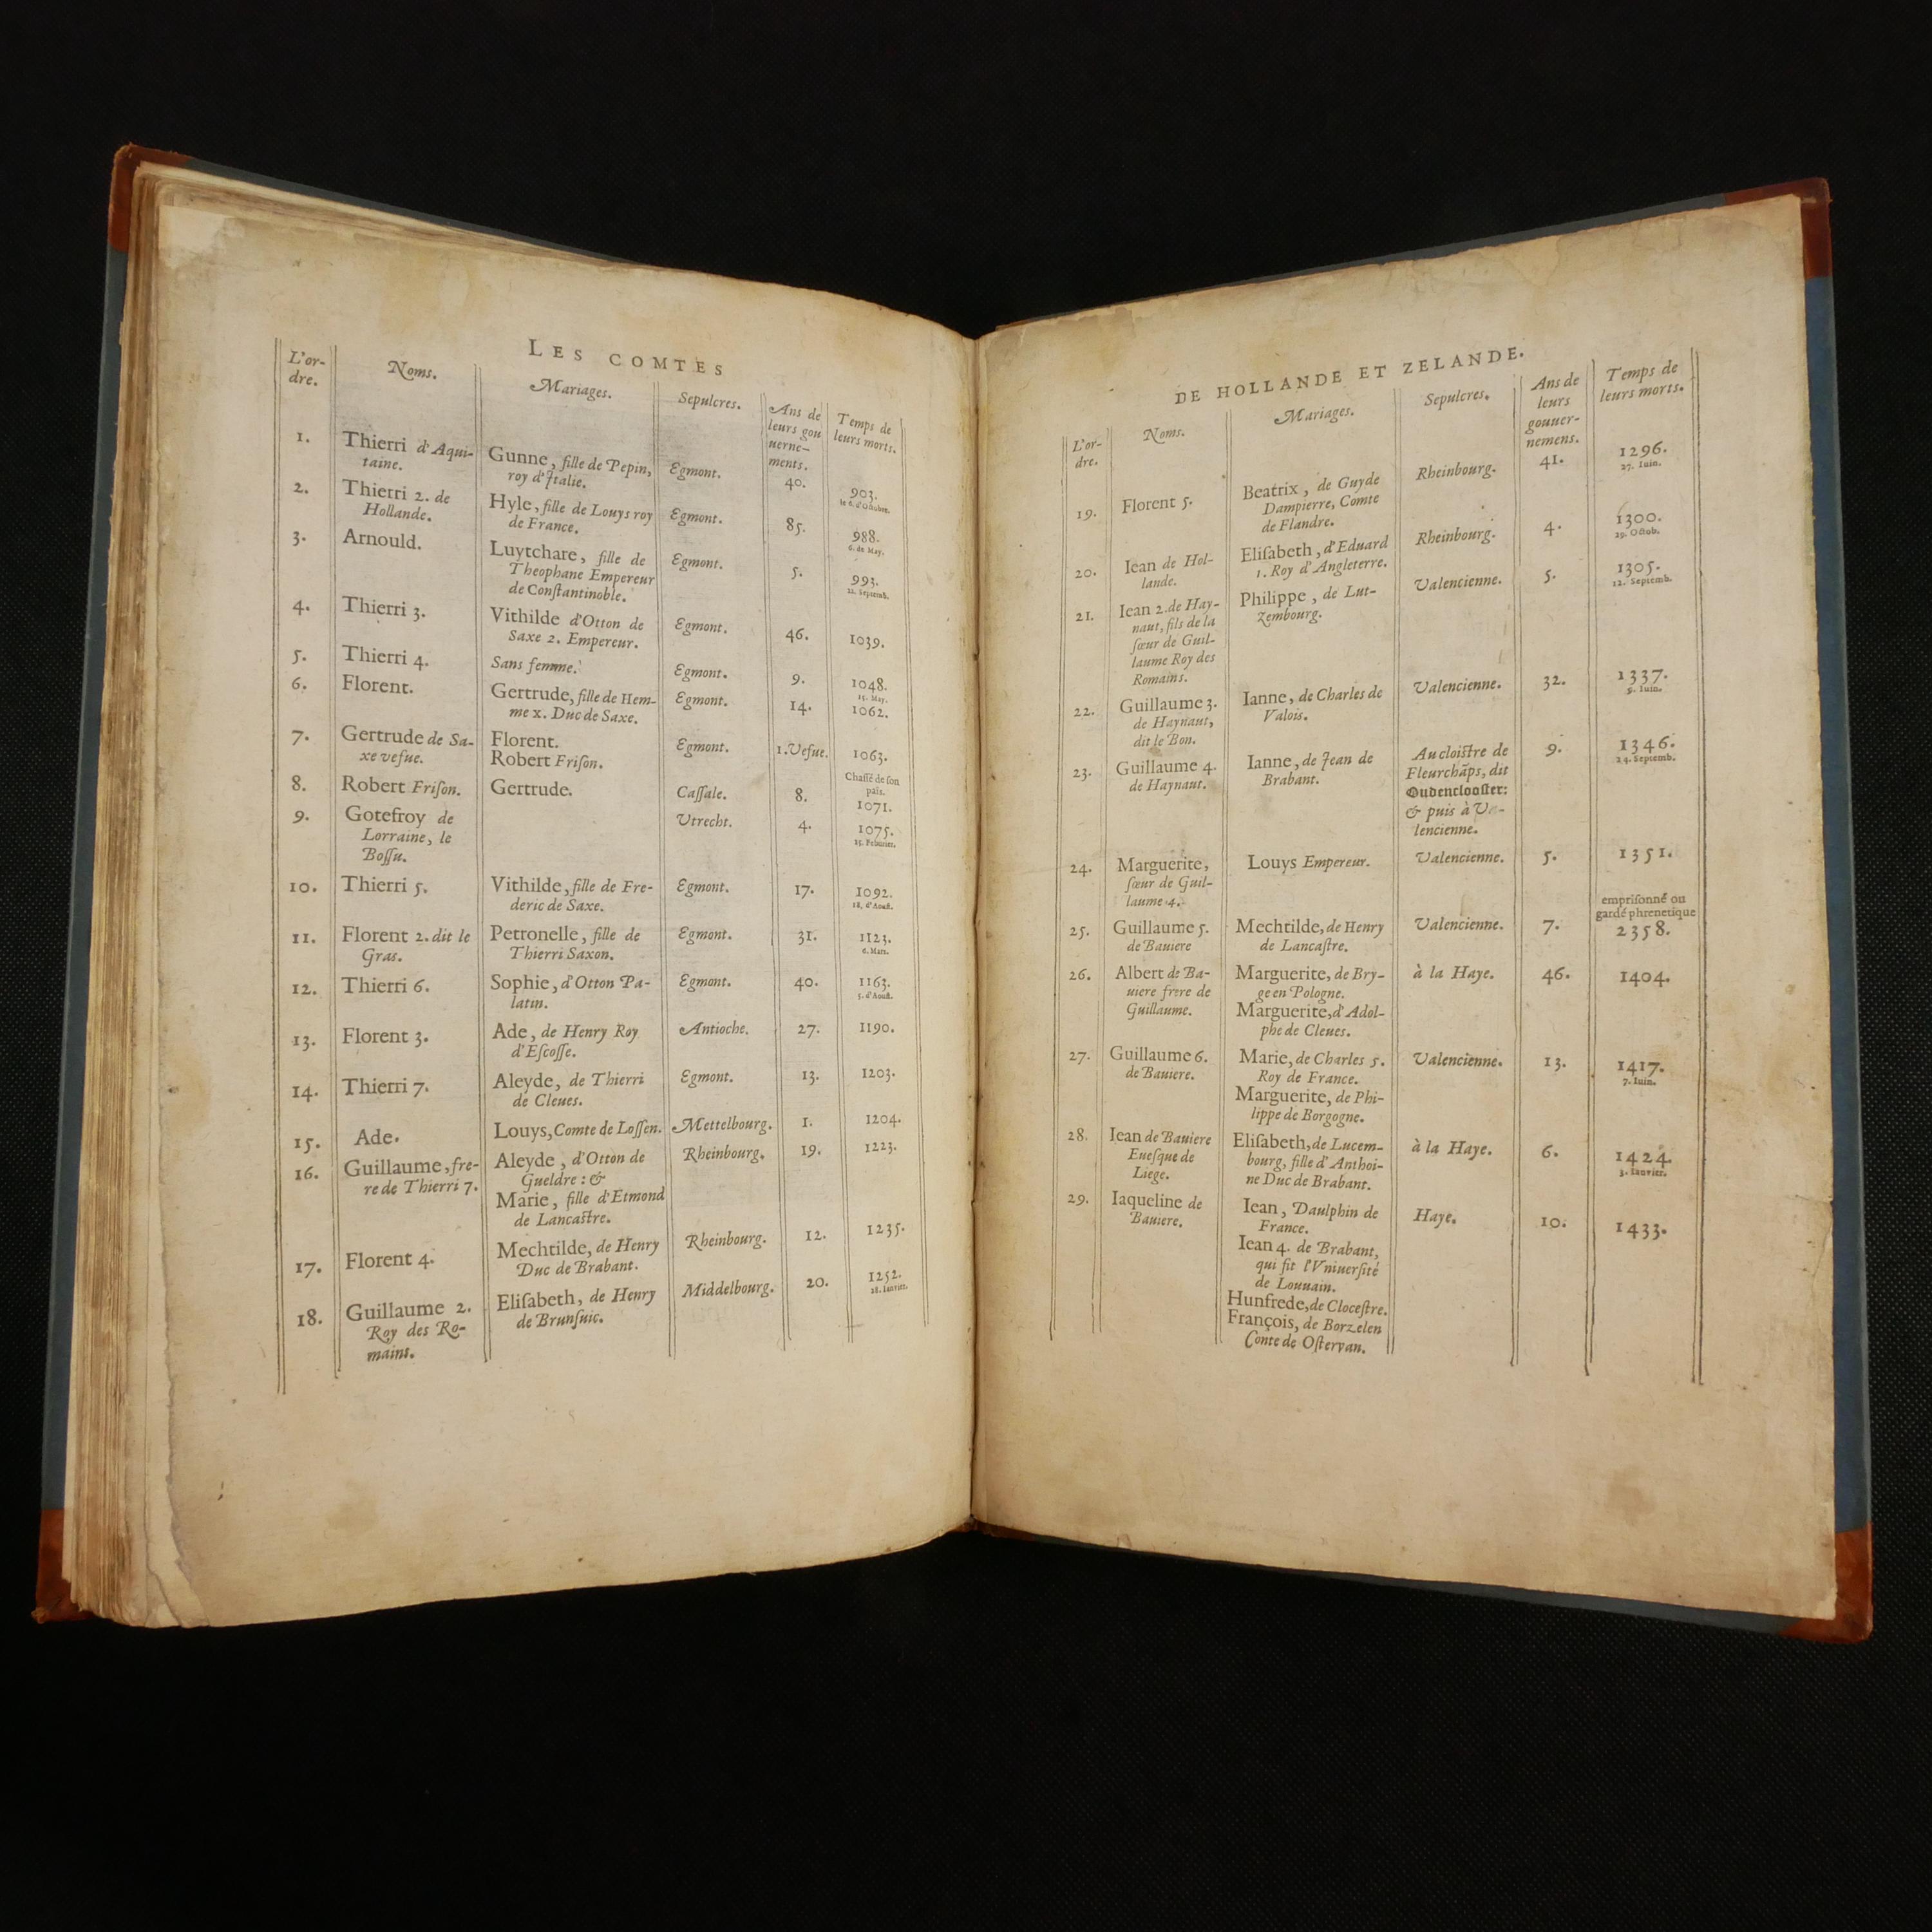 LES COMTES
L'or-
dre.
Noms.
Mariages.
Sepulcres.
Ans de
leurs gou
uerne-
ments.
Temps de
leurs morts.
1.
Thierri d'Aqui-
taine.
Gunne, fille de Pepin,
roy d'Italie.
Egmont.
40.
903.
le 6. d'Octobre.
2.
Thierri 2. de
Hollande.
Hyle, fille de Louys roy
de France.
Egmont.
85.
988.
6. de May.
3.
Arnould.
Luytchare, fille de
Theophane Empereur
de Constantinoble.
Egmont.
5.
993.
22. Septemb.
4.
Thierri 3.
Vithilde d'Otton de
Saxe 2. Empereur.
Egmont.
46.
1039.
5.
Thierri 4.
Sans femme.
Egmont.
9.
1048.
15. May.
6.
Florent.
Gertrude, fille de Hem-
me x. Duc de Saxe.
Egmont.
14.
1062.
7.
Gertrude de Sa-
xe vefue.
Florent.
Robert Frison.
Egmont.
1. Vefue.
1063.
8.
Robert Frison.
Gertrude.
Cassale.
8.
Chassé de son
païs.
1071.
9.
Gotefroy de
Lorraine, le
Bossu.
Utrecht.
4.
1075.
25. Februier.
10.
Thierri 5.
Vithilde, fille de Fre-
deric de Saxe.
Egmont.
17.
1092.
18. d'Aoust.
11.
Florent 2. dit le
Gras.
Petronelle, fille de
Thierri Saxon.
Egmont.
31.
1123.
6. Mars.
12.
Thierri 6.
Sophie, d'Otton Pa-
latin.
Egmont.
40.
1163.
5. d'Aoust.
13.
Florent 3.
Ade, de Henry Roy
d'Escosse.
Antioche.
27.
1190.
14.
Thierri 7.
Aleyde, de Thierri
de Cleues.
Egmont.
13.
1203.
15.
Ade.
Louys, Comte de Lossen.
Mettelbourg.
1.
1204.
16.
Guillaume, fre-
re de Thierri 7.
Aleyde, d'Otton de
Gueldre: &
Marie, fille d'Etmond
de Lancastre.
Rheinbourg.
19.
1223.
17.
Florent 4.
Mechtilde, de Henry
Duc de Brabant.
Rheinbourg.
12.
1235.
18.
Guillaume 2.
Roy des Ro-
mains.
Elisabeth, de Henry
de Brunsuic.
Middelbourg.
20.
1252.
28. Ianvier.
DE HOLLANDE ET ZELANDE.
L'or-
dre.
Noms.
Mariages.
Sepulcres.
Ans de
leurs
gouuer-
nemens.
Temps de
leurs morts.
19.
Florent 5.
Beatrix, de Guyde
Dampierre, Comte
de Flandre.
Rheinbourg.
41.
1296.
27. Iuin.
20.
Iean de Hol-
lande.
Elisabeth, d'Eduard
1. Roy d'Angleterre.
Rheinbourg.
4.
1300.
29. Octob.
21.
Iean 2. de Hay-
naut, fils de la
sœur de Guil-
laume Roy des
Romains.
Philippe, de Lut-
zembourg.
Valencienne.
5.
1305.
12. Septemb.
22.
Guillaume 3.
de Haynaut,
dit le Bon.
Ianne, de Charles de
Valois.
Valencienne.
32.
1337.
9. Iuin.
23.
Guillaume 4.
de Haynaut.
Ianne, de Jean de
Brabant.
Au cloistre de
Fleurchãps, dit
Oudenclooster:
& puis à
lencienne.
9.
1346.
24. Septemb.
24.
Marguerite,
sœur de Guil-
laume 4.
Louys Empereur.
Valencienne.
5.
1351.
25.
Guillaume 5.
de Bauiere
Mechtilde, de Henry
de Lancastre.
Valencienne.
7.
emprisonné ou
gardé phrenetique
2358.
26.
Albert de Ba-
uiere frere de
Guillaume.
Marguerite, de Bry-
ge en Pologne.
Marguerite, d'Adol-
phe de Cleues.
à la Haye.
46.
1404.
27.
Guillaume 6.
de Bauiere.
Marie, de Charles 5.
Roy de France.
Marguerite, de Phi-
lippe de Borgogne.
Valencienne.
13.
1417.
7. Iuin.
28.
Iean de Bauiere
Euesque de
Liege.
Elisabeth, de Lucem-
bourg, fille d'Anthoi-
ne Duc de Brabant.
à la Haye.
6.
1424.
5. Ianvier.
29.
Iaqueline de
Bauiere.
Iean, Daulphin de
France.
Iean 4. de Brabant,
qui fit l'Vniuersité
de Louuain.
Hunfrede, de Clocestre.
François, de Borzelen
Conte de Ostervan.
Haye.
10.
1433.